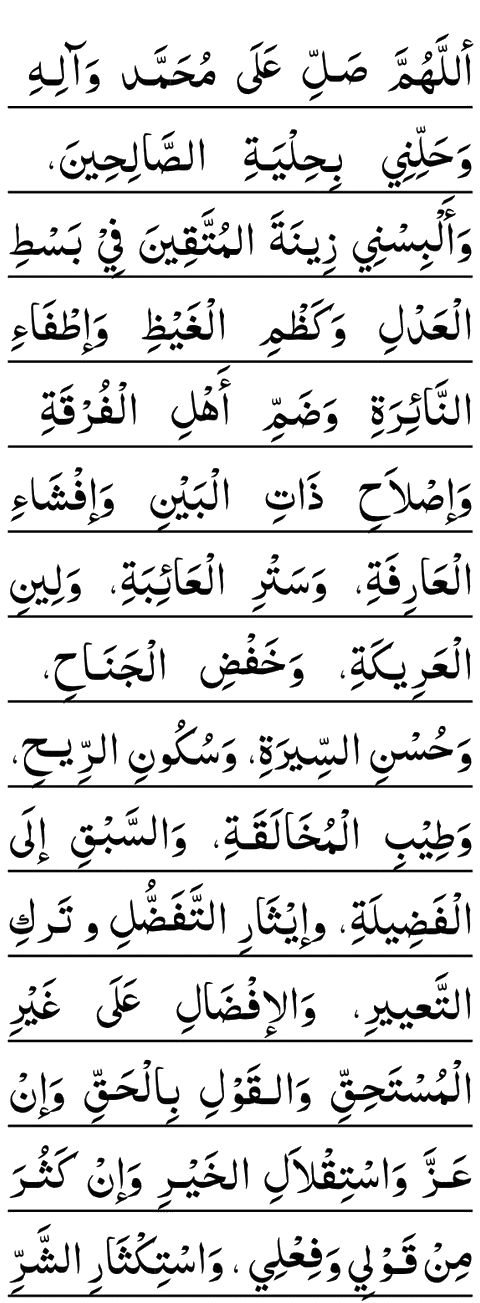 أَللَّهُمَّ صَلِّ عَلَى مُحَمَّد وَآلِهِ
وَحَلِّنِي بِحِلْيَةِ الصَّالِحِينَ،
وَأَلْبِسْنِي زِينَةَ المُتَّقِينَ فِيْ بَسْطِ
الْعَدْلِ وَكَظْمِ الْغَيْظِ وَإطْفَاءِ
النَّائِرَةِ وَضَمِّ أَهْلِ الْفُرْقَةِ
وَإصْلاَحِ ذَاتِ الْبَيْنِ وَإفْشَاءِ
الْعَارِفَةِ، وَسَتْرِ الْعَائِبَةِ، وَلِينِ
الْعَرِيكَةِ، وَخَفْضِ الْجَنَاحِ،
وَحُسْنِ السِّيرَةِ، وَسُكُونِ الرِّيحِ،
وَطِيْبِ الْمُخَالَقَةِ، وَالسَّبْقِ إلَى
الْفَضِيلَةِ، وإيْثَارِ التَّفَضُّلِ و تَركِ
التَّعييرِ، وَالإفْضَالِ عَلَى غَيْرِ
الْمُسْتَحِقِّ وَالقَوْلِ بِالْحَقِّ وَإنْ
عَزَّ وَاسْتِقْلاَلِ الخَيْرِ وَإنْ كَثُرَ
مِنْ قَوْلِي وَفِعْلِي ، وَاسْتِكْثَارِ الشَّرِّ